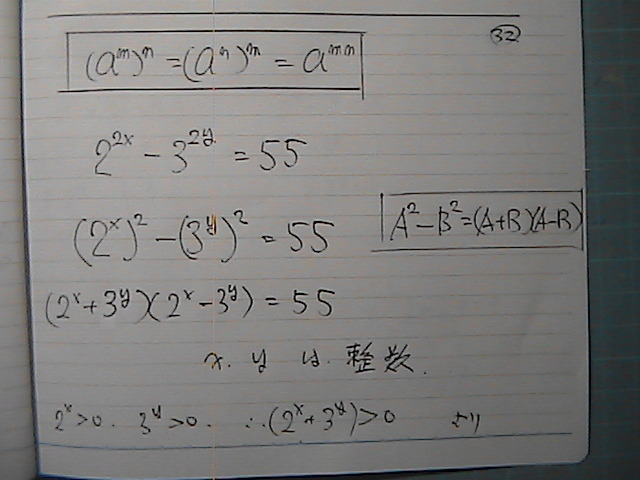 32
(a^m)^n = (a^n)^m = a^{mn}
2^{2x} - 3^{2y} = 55
(2^x)^2 - (3^y)^2 = 55
A^2 - B^2 = (A+B)(A-B)
(2^x + 3^y)(2^x - 3^y) = 55
x. y は. 整数.
2^x > 0. 3^y > 0. ∴(2^x + 3^y) > 0 より